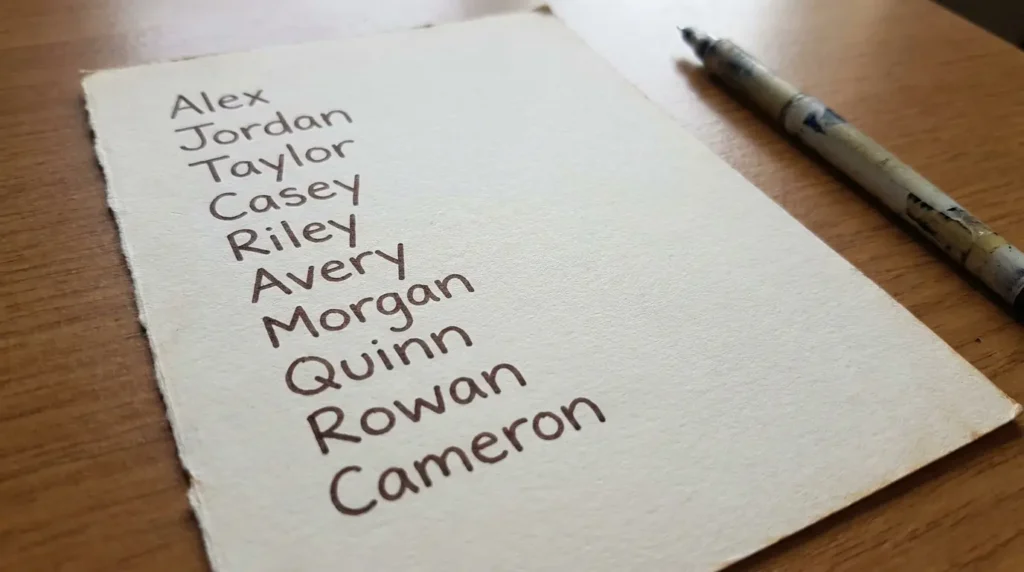 Alex
Jordan
Taylor
Casey
Riley
Avery
Morgan
Quinn
Rowan
Cameron